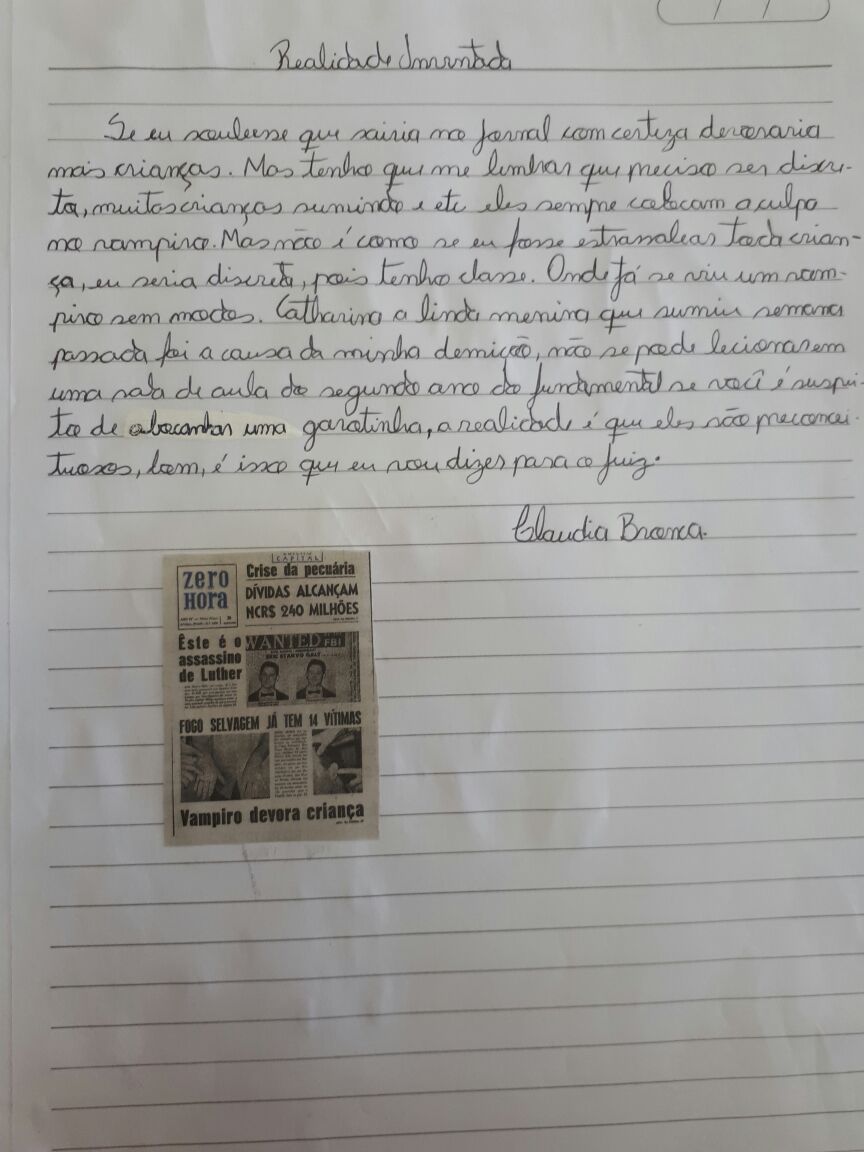 Realidade Inventada
Se eu soubesse que sairia no jornal com certeza devoraria
mais crianças. Mas tenho que me lembrar que preciso ser discre-
ta, muitas crianças sumindo e etc eles sempre colocam a culpa
no vampiro. Mas não é como se eu fosse estraçalhar toda crian-
ça, eu seria discreta, pois tenho classe. Onde já se viu um vam-
piro sem modos. Catharina a linda menina que sumiu semana
passada foi a causa da minha demição, não se pode lecionar em
uma sala de aula do segundo ano do fundamental se você é suspei-
to de abocanhar uma garotinha, a realidade é que eles são preconcei-
tuosos, bom, é isso que eu vou dizer para o juiz.
Claudia Branca.
CAPITAL
zero
HORA
Crise da pecuária
DÍVIDAS ALCANÇAM
NCR$ 240 MILHÕES
Êste é o
assassino
de Luther
WANTED FBI
ERIC STARVO GALT
FOGO SELVAGEM JÁ TEM 14 VÍTIMAS
Vampiro devora criança